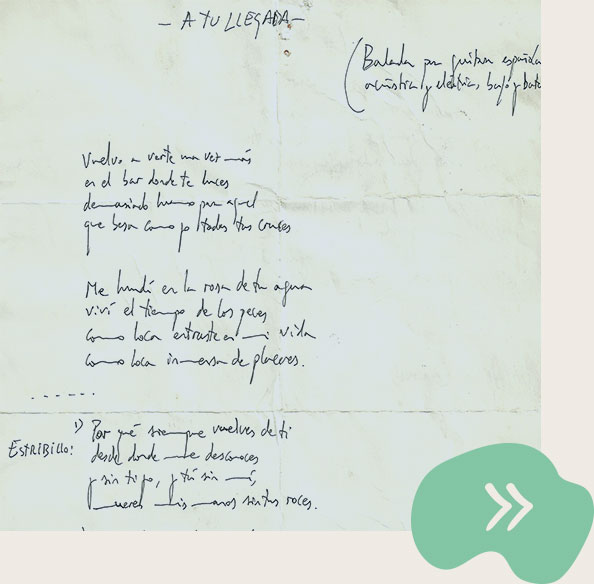 - A TU LLEGADA -
(Balada para guitarra española
acústica y eléctrica, bajo y bate
Vuelvo a verte una vez más
en el bar donde te luces
demasiado humo para aquel
que besa como yo todas tus cruces
Me hundí en la rosa de tu agua
viví el tiempo de los peces
como loca entraste en mi vida
como loca inmersa de placeres.
......
ESTRIBILLO: 1) Por qué siempre vuelves de ti
desde donde me desconoces
y sin tipo, y tú sin mí,
mueren mis manos sin tus roces.